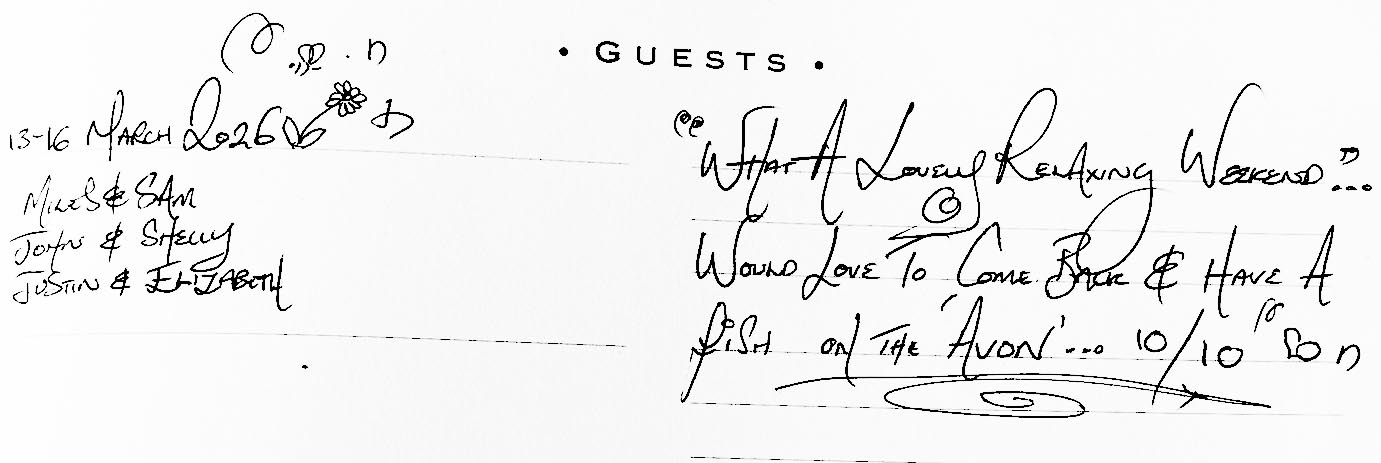 • GUESTS •
13-16 MARCH 2026
MILES & SAM
JOHN & SHELLY
JUSTIN & ELIZABETH
"WHAT A LOVELY RELAXING WEEKEND"...
WOULD LOVE TO COME BACK & HAVE A
FISH ON THE 'AVON'... 10/10